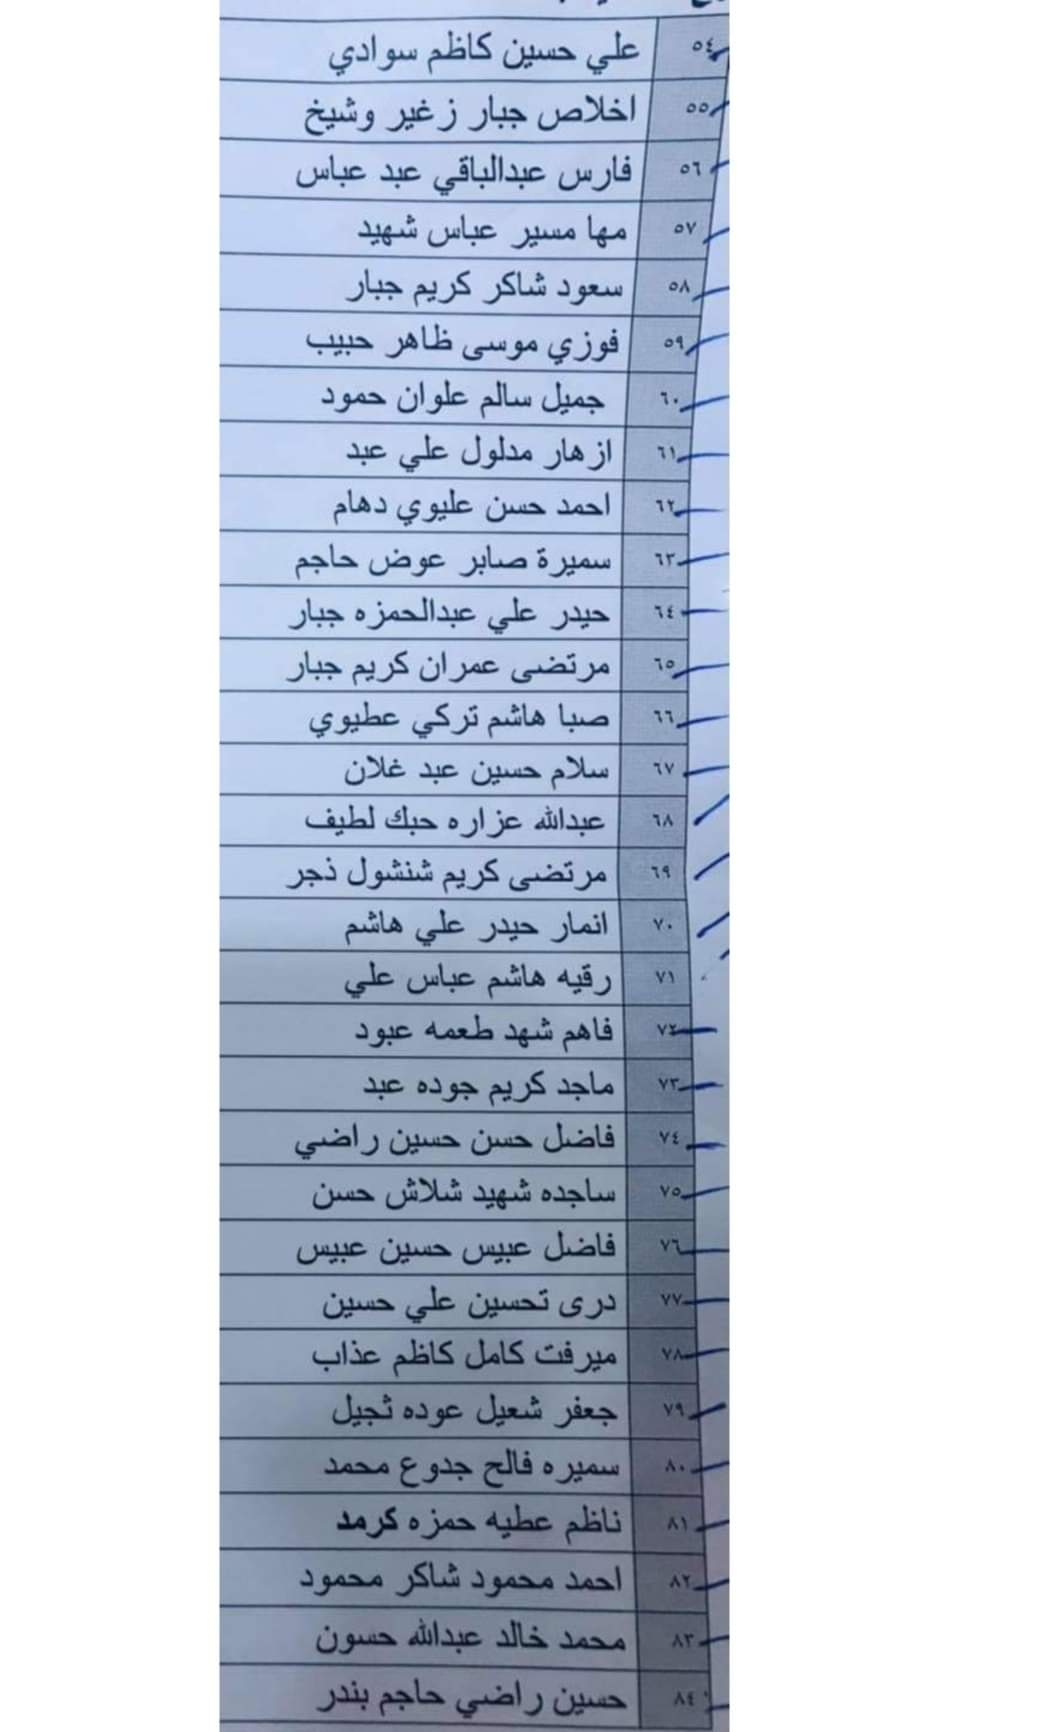 ٥٤ علي حسين كاظم سوادي
٥٥ اخلاص جبار زغير وشيخ
٥٦ فارس عبدالباقي عبد عباس
٥٧ مها مسير عباس شهيد
٥٨ سعود شاكر كريم جبار
٥٩ فوزي موسى ظاهر حبيب
٦٠ جميل سالم علوان حمود
٦١ ازهار مدلول علي عبد
٦٢ احمد حسن عليوي دهام
٦٣ سميرة صابر عوض حاجم
٦٤ حيدر علي عبدالحمزه جبار
٦٥ مرتضى عمران كريم جبار
٦٦ صبا هاشم تركي عطيوي
٦٧ سلام حسين عبد غلان
٦٨ عبدالله عزاره حبك لطيف
٦٩ مرتضى كريم شنشول ذجر
٧٠ انمار حيدر علي هاشم
٧١ رقيه هاشم عباس علي
٧٢ فاهم شهد طعمه عبود
٧٣ ماجد كريم جوده عبد
٧٤ فاضل حسن حسين راضي
٧٥ ساجده شهيد شلاش حسن
٧٦ فاضل عبيس حسين عبيس
٧٧ درى تحسين علي حسين
٧٨ ميرفت كامل كاظم عذاب
٧٩ جعفر شعيل عوده ثجيل
٨٠ سميره فالح جدوع محمد
٨١ ناظم عطيه حمزه كرمد
٨٢ احمد محمود شاكر محمود
٨٣ محمد خالد عبدالله حسون
٨٤ حسين راضي حاجم بندر